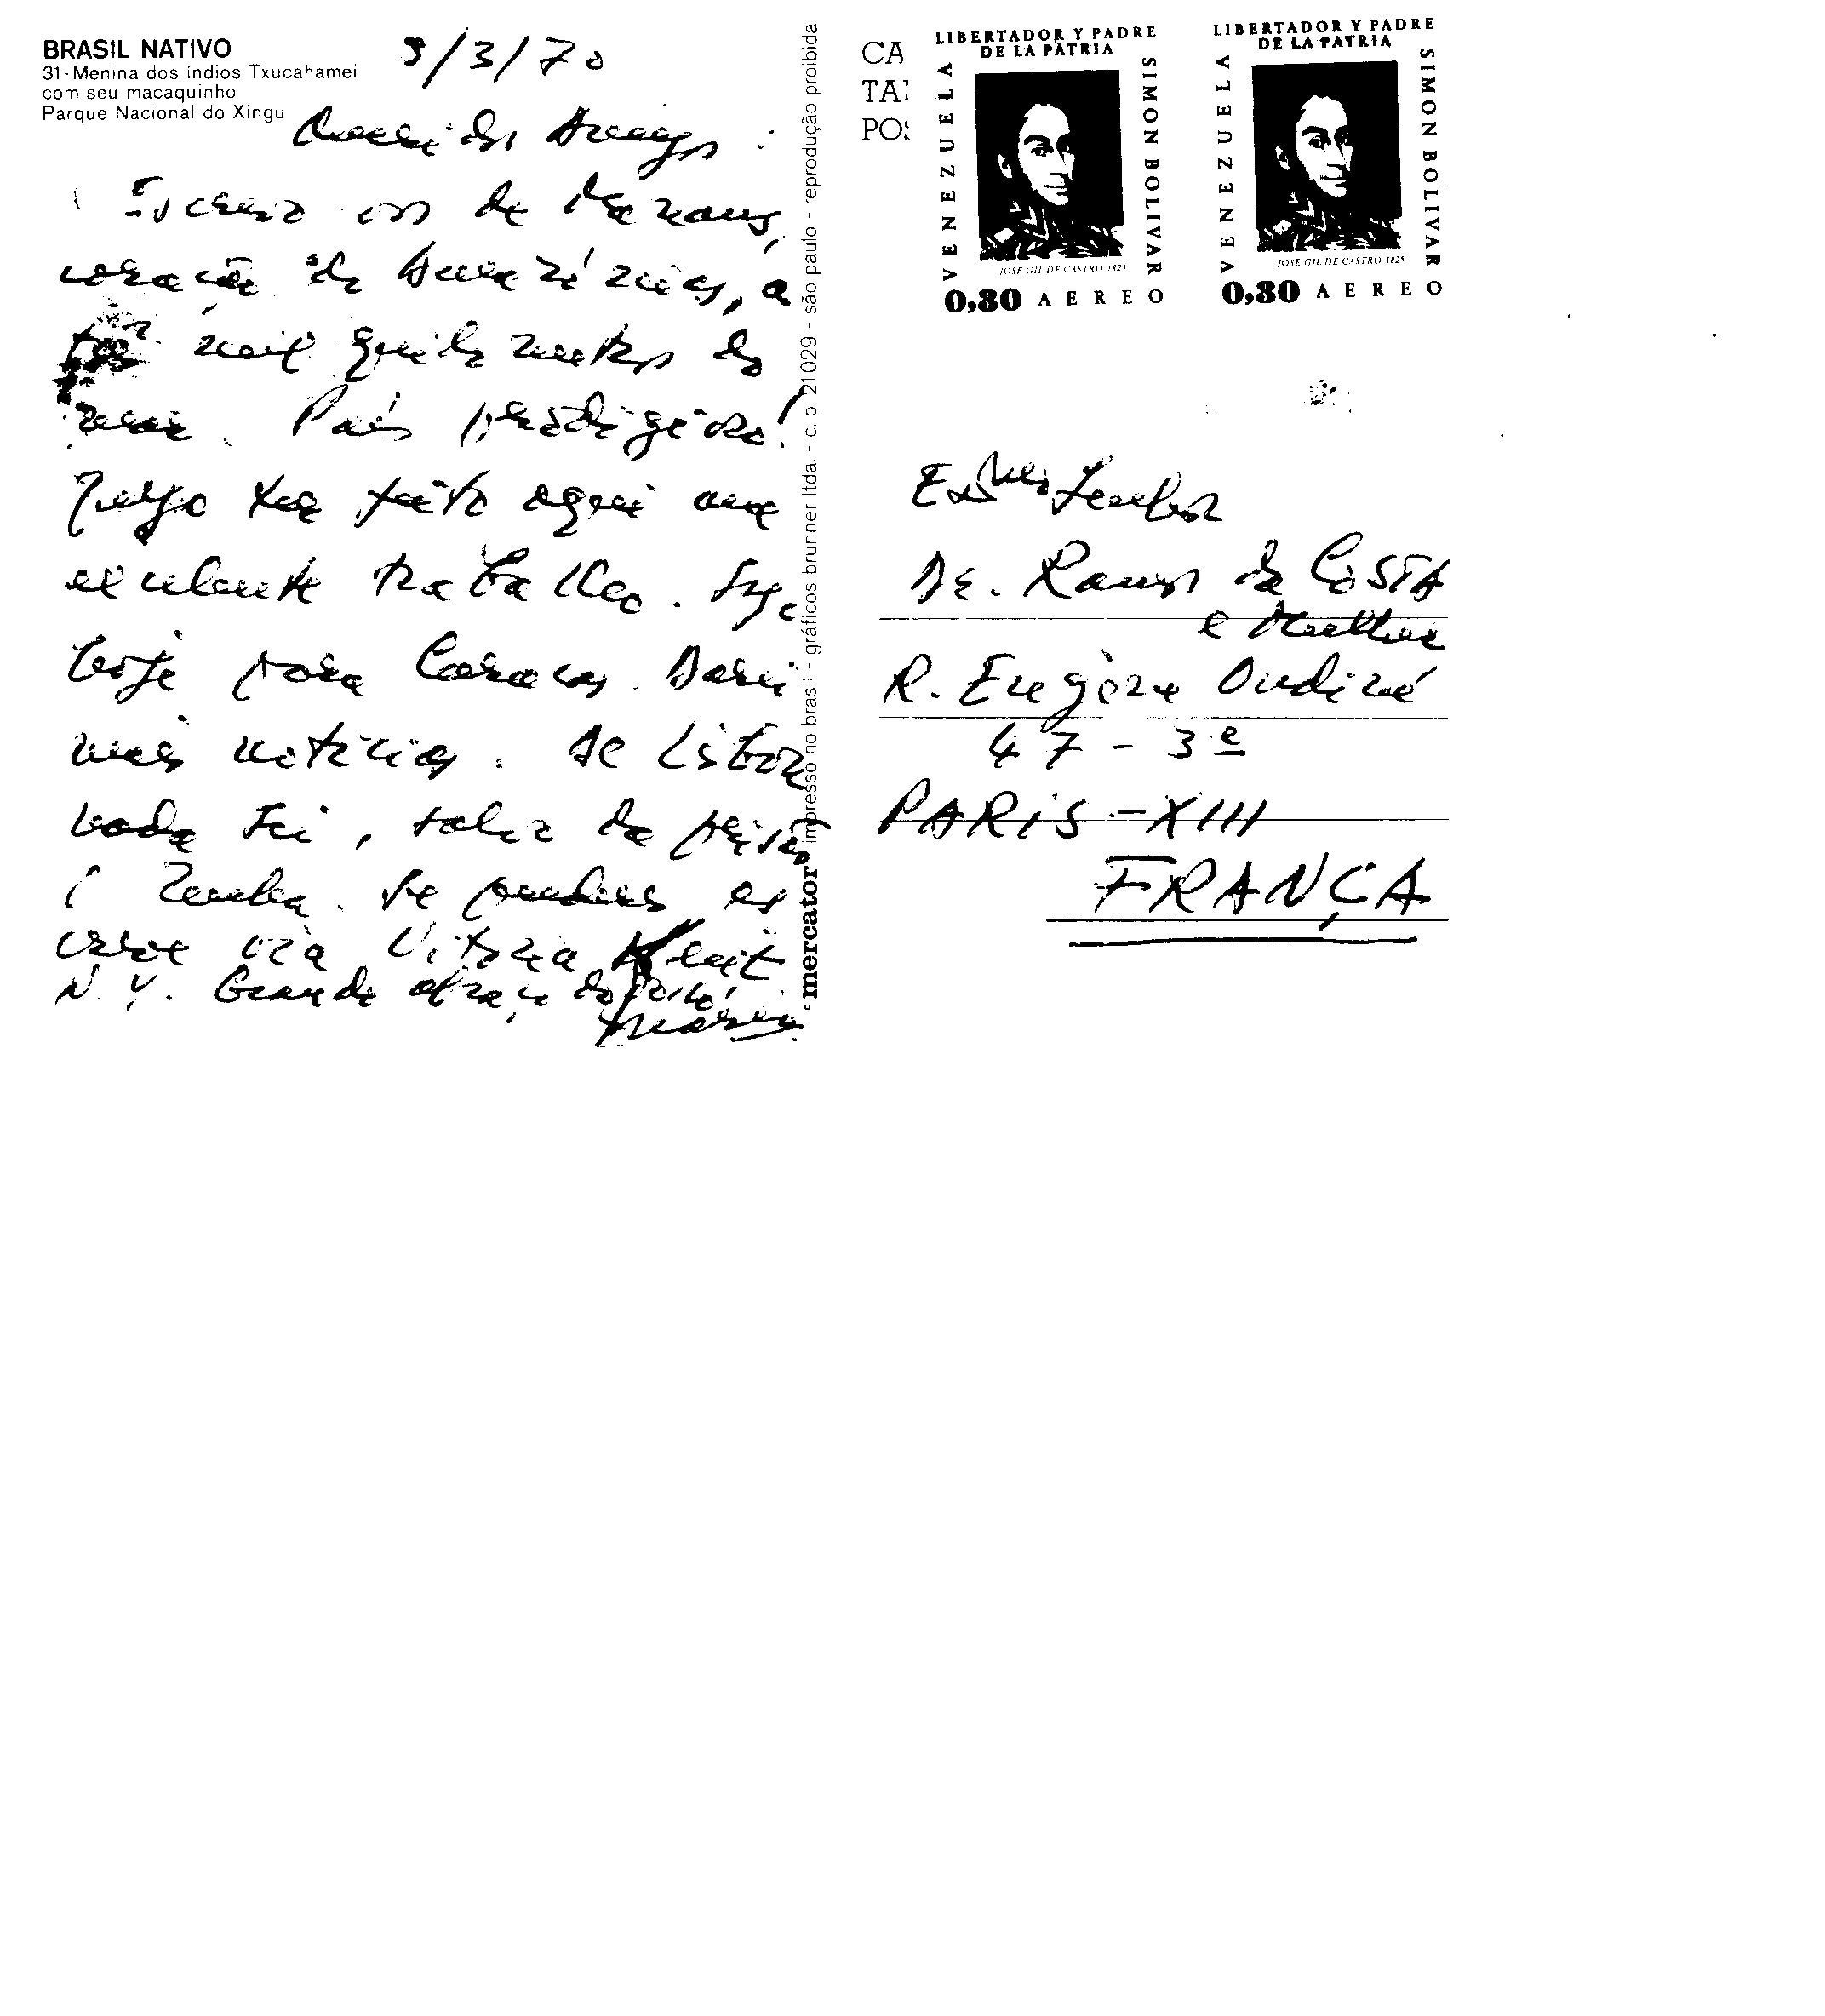 BRASIL NATIVO
31-Menina dos índios Txucahamei
com seu macaquinho
Parque Nacional do Xingu
3/3/70
Queridos Amigos:
Escrevo-vos de Manaus,
coração do Amazónias, a
mil quilómetros do
mar. País prodigioso!
Julgo ter feito aqui um
excelente trabalho. Sigo
hoje para Caracas. Darei
mais notícias. De Lisboa
nada sei, salvo da prisão
Zenha. Se puderes es
creve via Vitória
N. Y. Grande abraço do
Mário
impresso no brasil - gráficos brunner ltda. - c. p. 21.029 - são paulo - reprodução proibida
mercator
CA
TA
PO
LIBERTADOR Y PADRE
DE LA PATRIA
VENEZUELA
SIMON BOLIVAR
JOSE GIL DE CASTRO 1825
0,80 AEREO
LIBERTADOR Y PADRE
DE LA PATRIA
VENEZUELA
SIMON BOLIVAR
JOSE GIL DE CASTRO 1825
0,80 AEREO
Exmo Senhor
Dr. Ramos da COSTA
e Mulher
R. Eugène Oudiné
47 - 3e
PARIS - XIII
FRANÇA